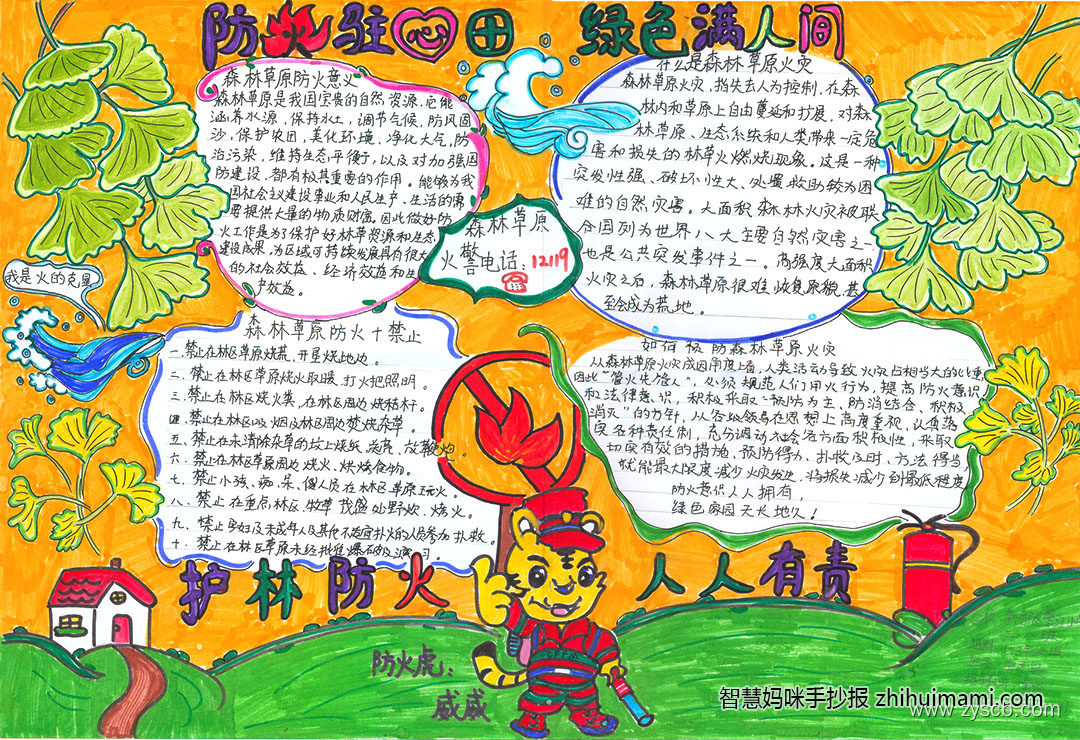 防火驻心田 绿色满人间
森林草原防火意义
森林草原是我国宝贵的自然资源,它能
涵养水源,保持水土,调节气候,防风固
沙,保护农田,美化环境,净化大气,防
治污染,维持生态平衡,以及对加强国
防建设,都有极其重要的作用。能够为我
国社会主义建设事业和人民生产、生活的需
要提供大量的物质财富。因此做好防
火工作是为了保护好林草资源和生态
建设成果,为区域可持续发展具有很大
的社会效益、经济效益和生
效益。
什么是森林草原火灾
森林草原火灾,指失去人为控制,在森
林内和草原上自由蔓延和扩展,对森
林草原、生态系统和人类带来一定危
害和损失的林草火燃烧现象。这是一种
突发性强、破坏性大、处置救助较为困
难的自然灾害。大面积森林火灾被联
合国列为世界八大主要自然灾害之一
也是公共突发事件之一。高强度大面积
火灾之后,森林草原很难恢复原貌,甚
至会成为荒地。
森林草原
火警电话:12119
我是火的克星
森林草原防火十禁止
一.禁止在林区草原烧荒、开垦烧地边。
二.禁止在林区草原烧火取暖、打火把照明。
三.禁止在林区烧火粪,在林区周边烧秸秆。
四.禁止在林区吸烟及林区周边焚烧杂草。
五、禁止在未清除杂草的坟上烧纸、点亮、放鞭炮。
六、禁止在林区草原周边烧火、烘烤食物。
七、禁止小孩、痴、呆、傻人员在林区草原玩火。
八、禁止在重点林区、牧草茂盛处野炊、烧火。
九、禁止孕妇及未成年人及其他不适宜扑火的人员参加扑救。
十、禁止在林区草原未经批准爆破及演习。
如何预防森林草原火灾
从森林草原火灾成因角度看,人类活动导致火灾占相当大的比重,
因此"管火先管人",必须规范人们用火行为,提高防火意识
和法律意识,积极采取"预防为主、防消结合、积极
消灭"的方针,从各级领导在思想上高度重视,认真落
实各种责任制,充分调动社会各方面积极性,采取
切实有效的措施,预防得力、扑救及时、方法得当
就能最大限度减少火灾发生,将损失减少到最低程度
防火意识人人拥有,
绿色家园天长地久!
护林防火 人人有责
防火虎:
威威
智慧妈咪手抄报 zhihuimami.com
www.zyscb.com